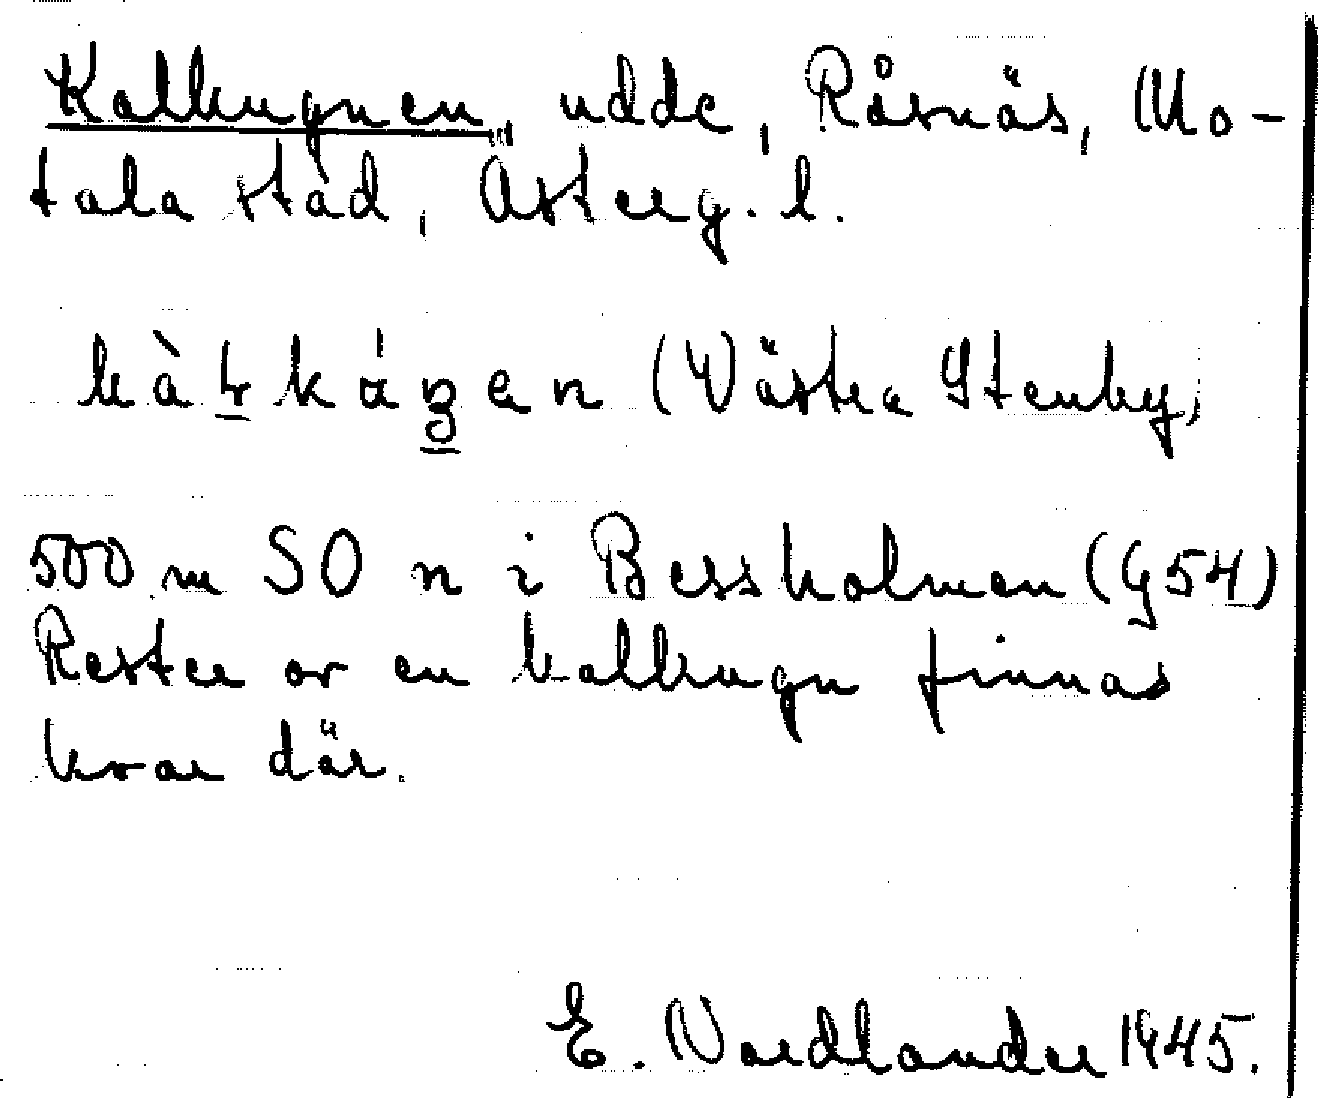 Kalkugnen, udde, Råsnäs, Mo-
tala stad, Österg. l.
(Västra Stenby)
500 m SO n i Bessholmen (G54)
Rester av en kalkugn finnas
kvar där.
E. Nordlander 1945.